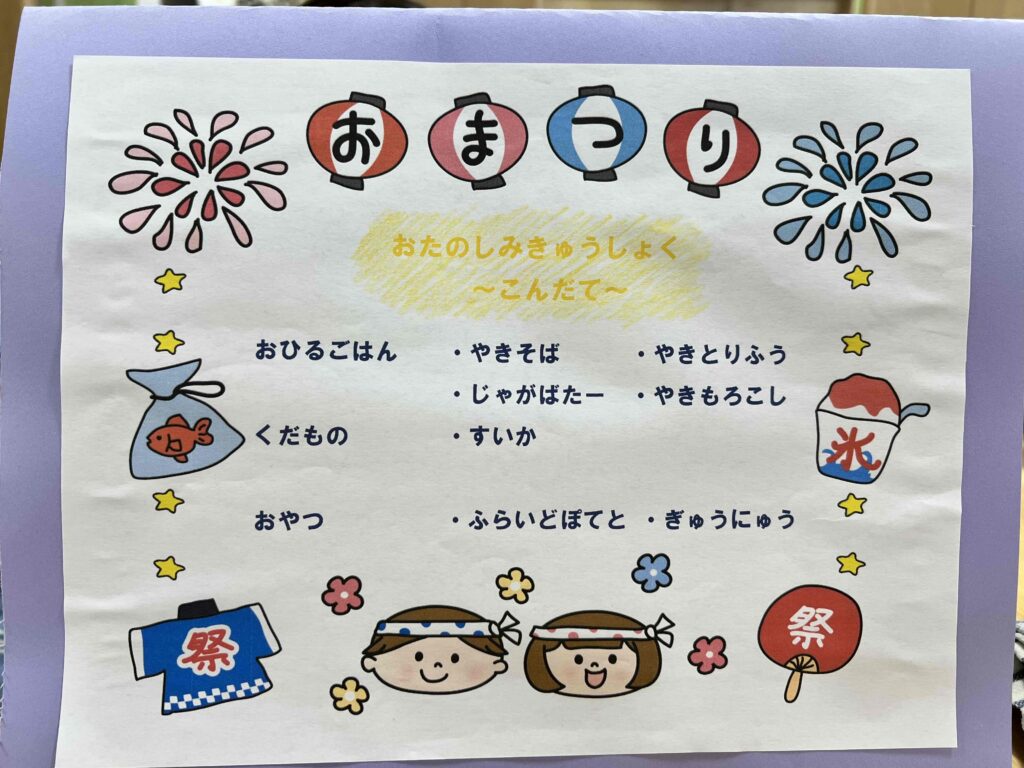 おまつり
おたのしみきゅうしょく
～こんだて～
おひるごはん ・やきそば ・やきとりふう
・じゃがばたー ・やきもろこし
くだもの ・すいか
氷
おやつ ・ふらいどぽてと ・ぎゅうにゅう
祭
祭